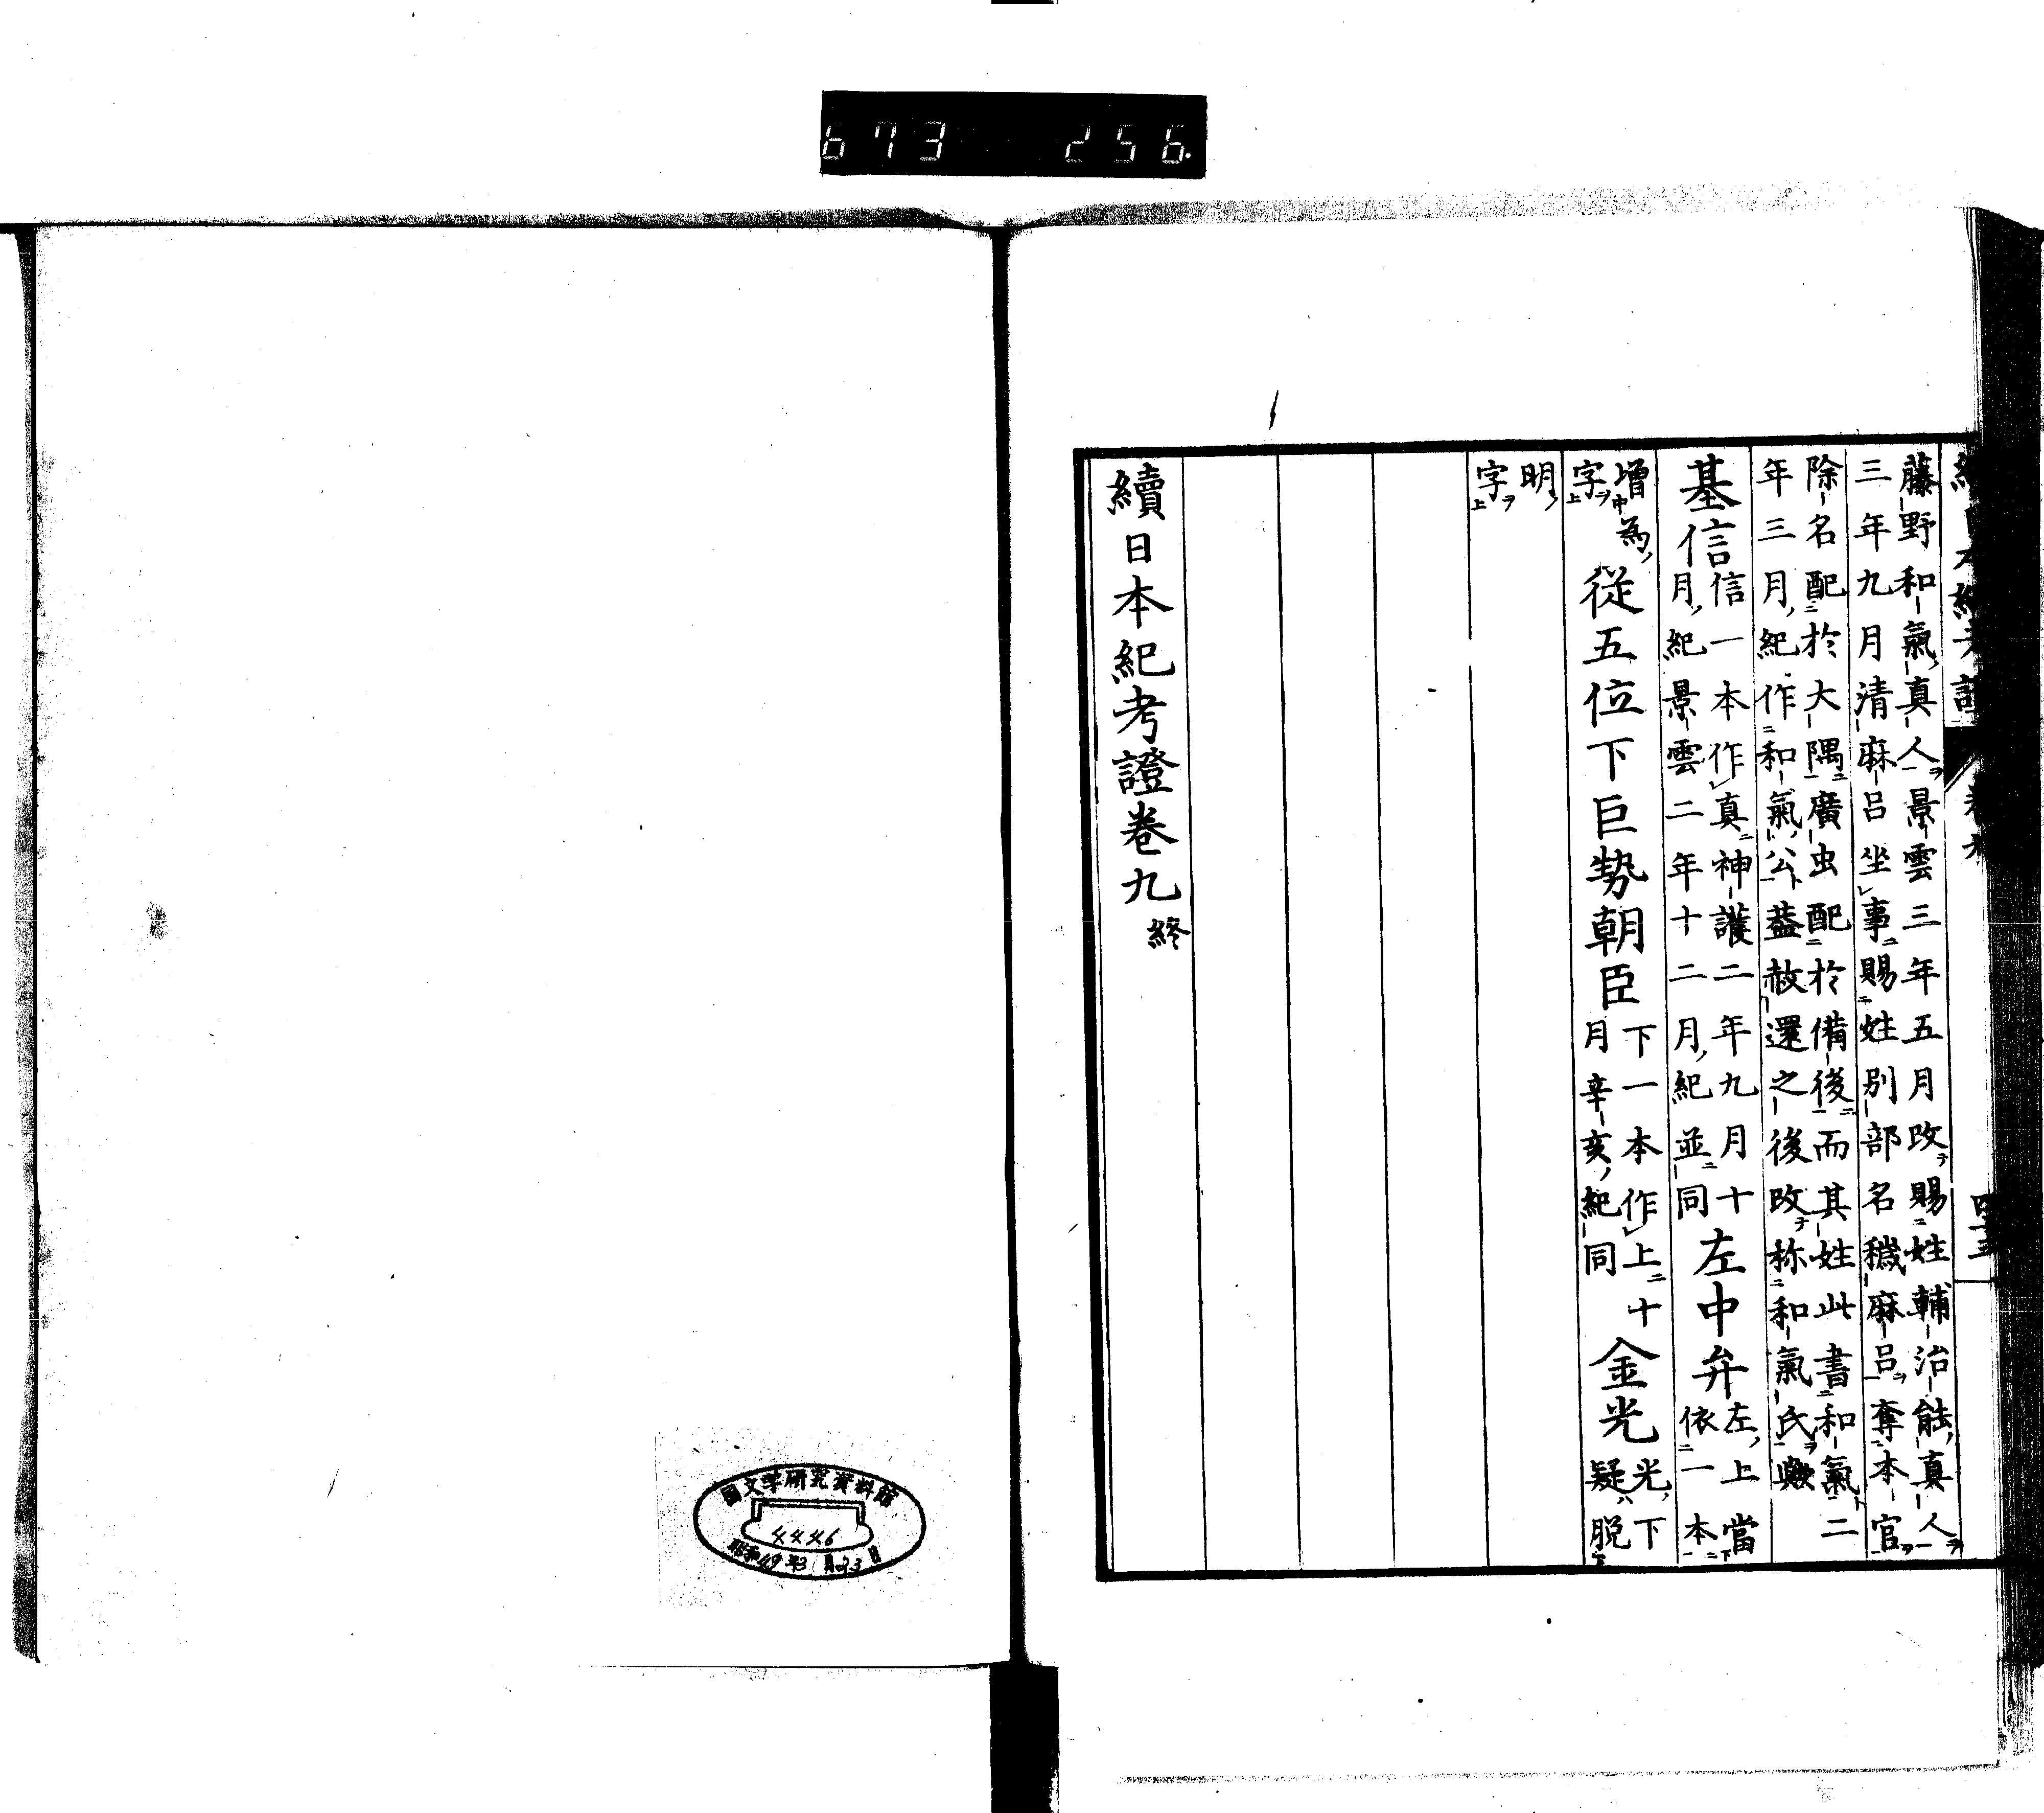 673 256.
藤野和氣真人景雲三年五月改賜姓輔治能真人
三年九月清麻呂坐事賜姓別部名穢麻呂奪本官
除名配於大隅廣虫配於備後而其姓此書和氣二
年三月紀作和氣公葢赦還之後改称和氣氏歟
基信 信一本作真神護二年九月十
月紀景雲二年十二月紀並同 左中弁 左上當
依一本
增為
字 從五位下巨勢朝臣 下一本作上十
月辛亥紀同 金光 光下
疑脱
明
字
續日本紀考證卷九終
國文学研究資料館
4446
昭和49年3月23日